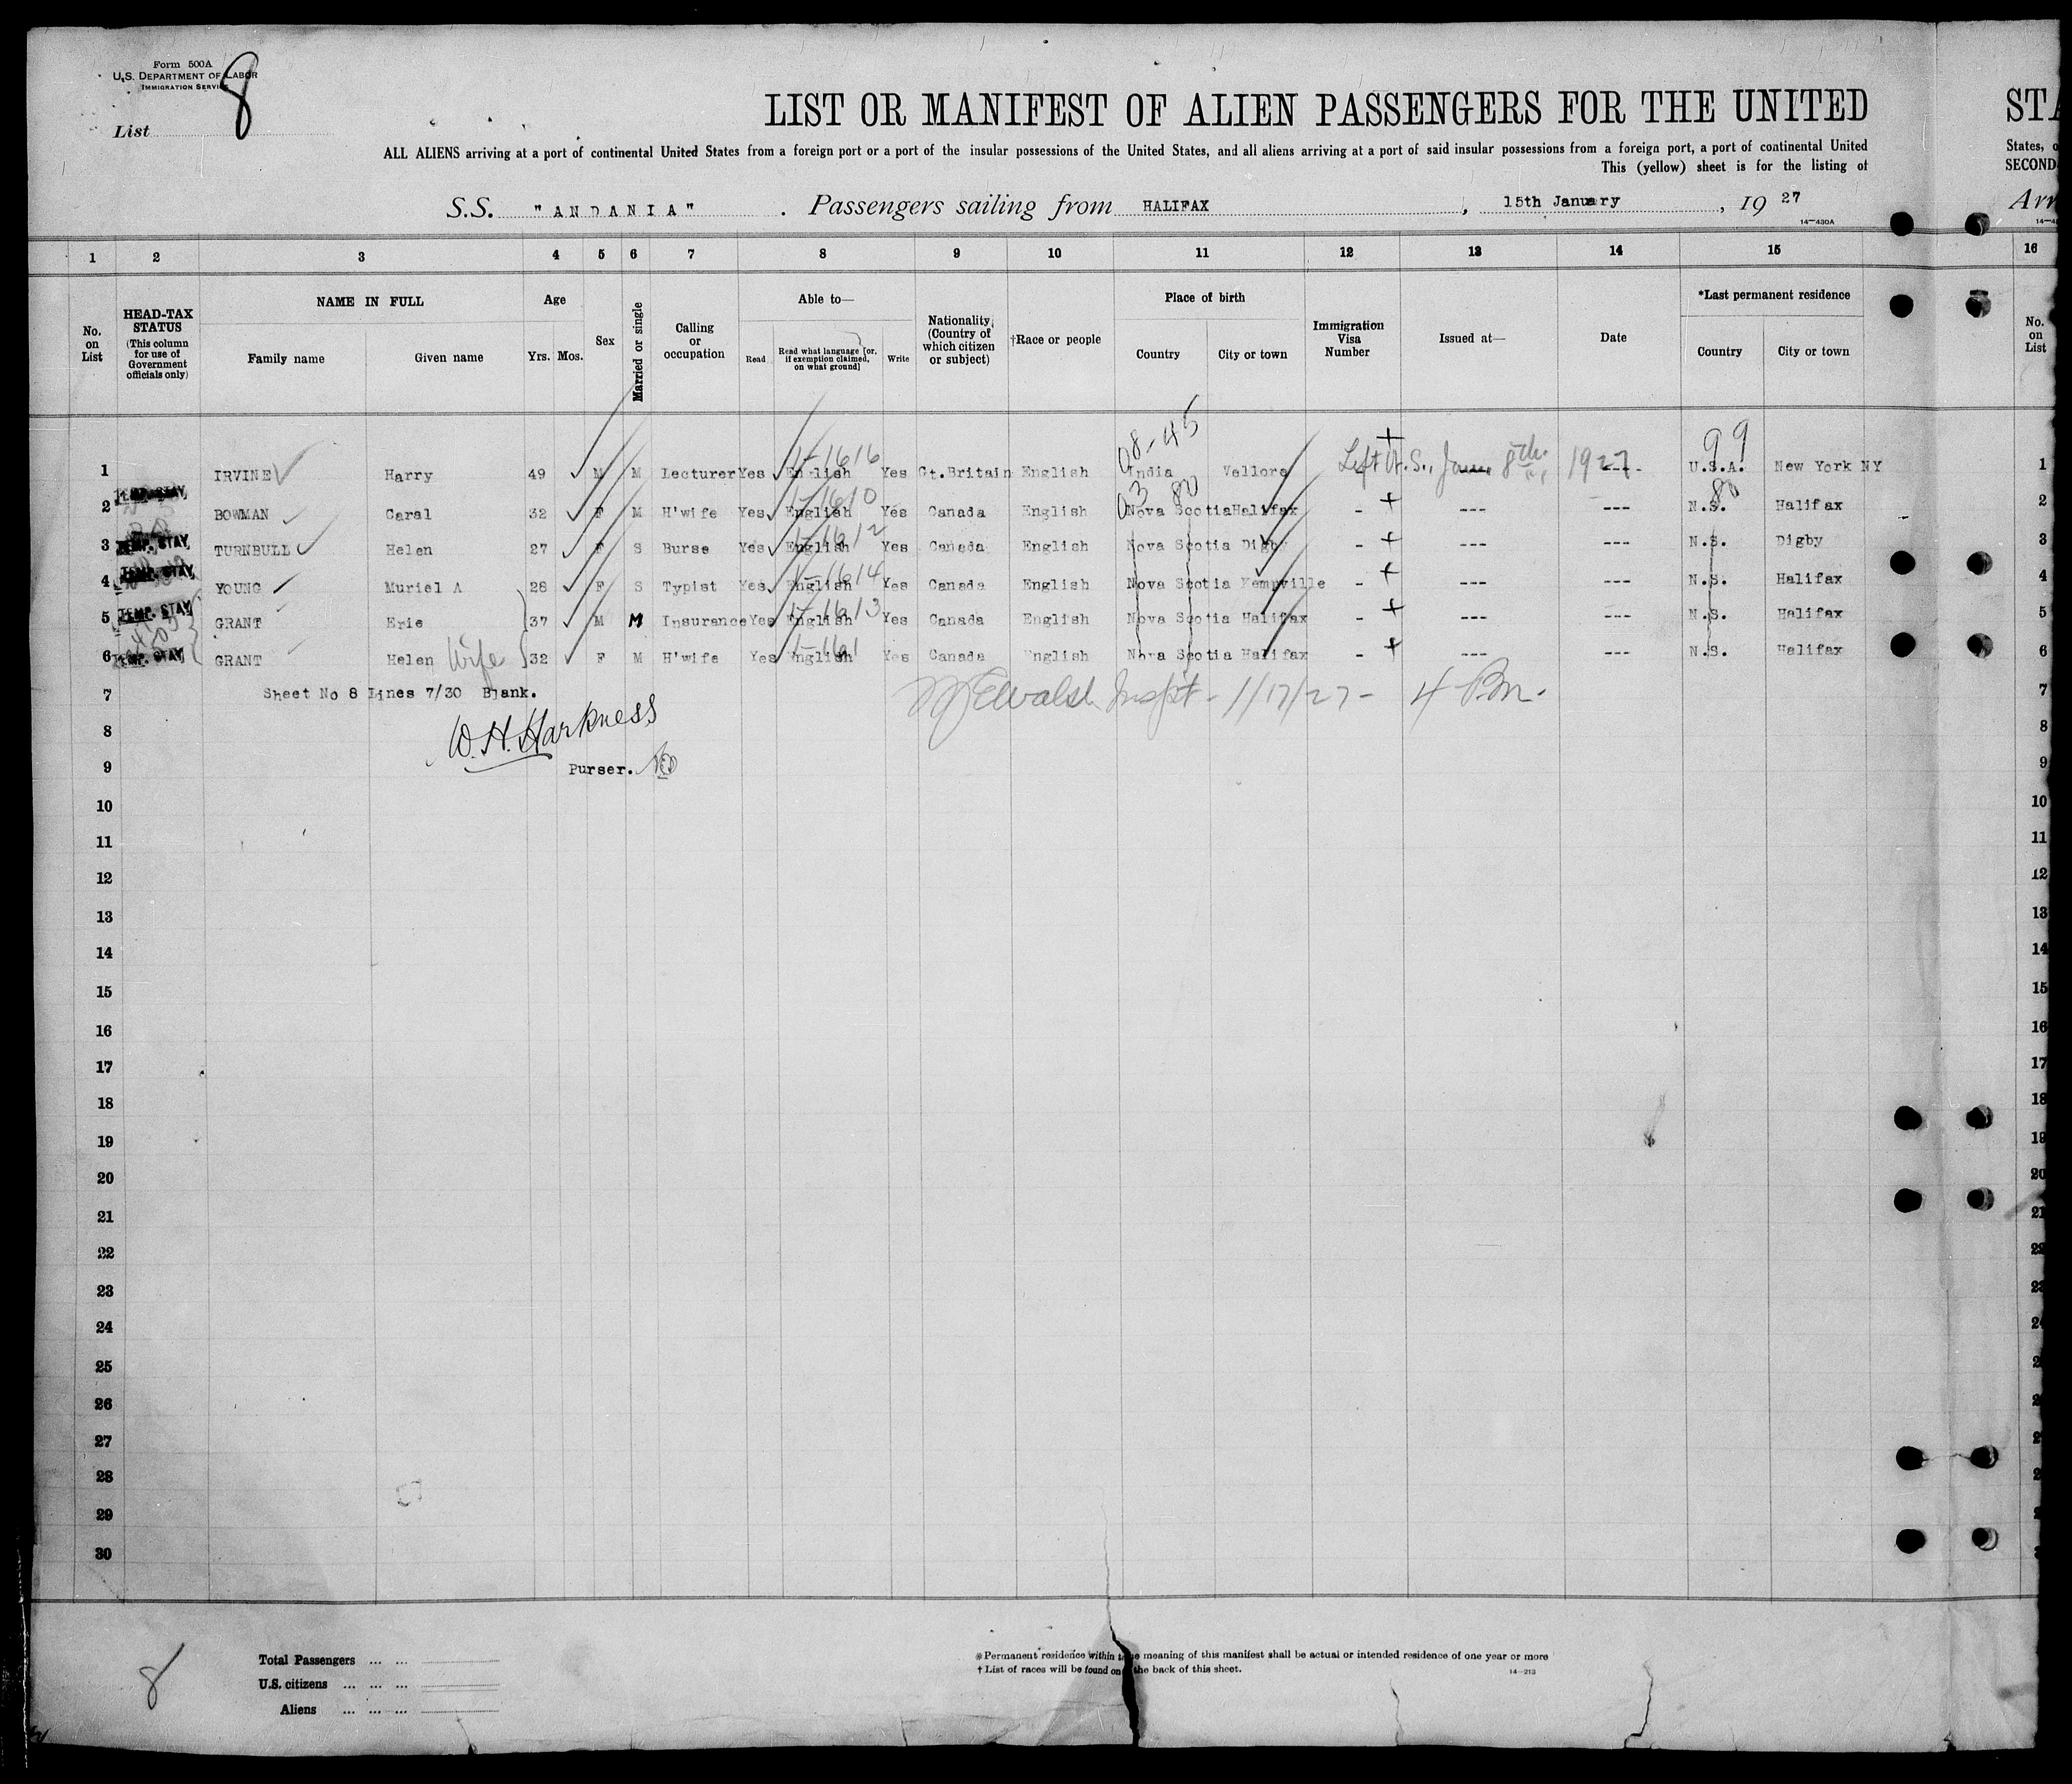 Form 500A
U.S. DEPARTMENT OF LABOR
IMMIGRATION SERVICE
8
List
LIST OR MANIFEST OF ALIEN PASSENGERS FOR THE UNITED
STA
ALL ALIENS arriving at a port of continental United States from a foreign port or a port of the insular possessions of the United States, and all aliens arriving at a port of said insular possessions from a foreign port, a port of continental United
States, o
This (yellow) sheet is for the listing of
SECOND
S.S. "ANDANIA" . Passengers sailing from HALIFAX , 15th January , 19 27
Arr
14-430A
1 2 3 4 5 6 7 8 9 10 11 12 13 14 15 16
No. on List
HEAD-TAX STATUS (This column for use of Government officials only)
NAME IN FULL
Family name Given name
Age
Yrs. Mos.
Sex
Married or single
Calling or occupation
Able to—
Read Read what language [or, if exemption claimed, on what ground] Write
Nationality (Country of which citizen or subject)
†Race or people
Place of birth
Country City or town
Immigration Visa Number
Issued at—
Date
*Last permanent residence
Country City or town
No. on List
08-45 99
1 IRVINE Harry 49 M M Lecturer Yes English 1-1616 Yes Gt.Britain English India Vellore Left U.S., Jan. 8th. 1927 --- U.S.A. New York NY 1
03 80 80
2 TEMP. STAY BOWMAN Caral 32 F M H'wife Yes English 1-1610 Yes Canada English Nova Scotia Halifax - + --- --- N.S. Halifax 2
3 TEMP. STAY TURNBULL Helen 27 F S Burse Yes English 1-1612 Yes Canada English Nova Scotia Digby - + --- --- N.S. Digby 3
4 TEMP. STAY YOUNG Muriel A 28 F S Typist Yes English 1-1614 Yes Canada English Nova Scotia Kempville - + --- --- N.S. Halifax 4
5 TEMP. STAY GRANT Eric 37 M M Insurance Yes English 1-1613 Yes Canada English Nova Scotia Halifax - + --- --- N.S. Halifax 5
6 TEMP. STAY GRANT Helen Wife 32 F M H'wife Yes English 1-161 Yes Canada English Nova Scotia Halifax - + --- --- N.S. Halifax 6
7 Sheet No 8 Lines 7/30 Blank. Walsh Inspt - 1/17/27 - 4 P.M. 7
8 W. H. Harkness 8
9 Purser. 9
10 10
11 11
12 12
13 13
14 14
15 15
16 16
17 17
18 18
19 19
20 20
21 21
22 22
23 23
24 24
25
26
27
28
29
30
8
Total Passengers ... ...
U.S. citizens ... ... ...
Aliens ... ... ...
*Permanent residence within the meaning of this manifest shall be actual or intended residence of one year or more
† List of races will be found on the back of this sheet.
14-213